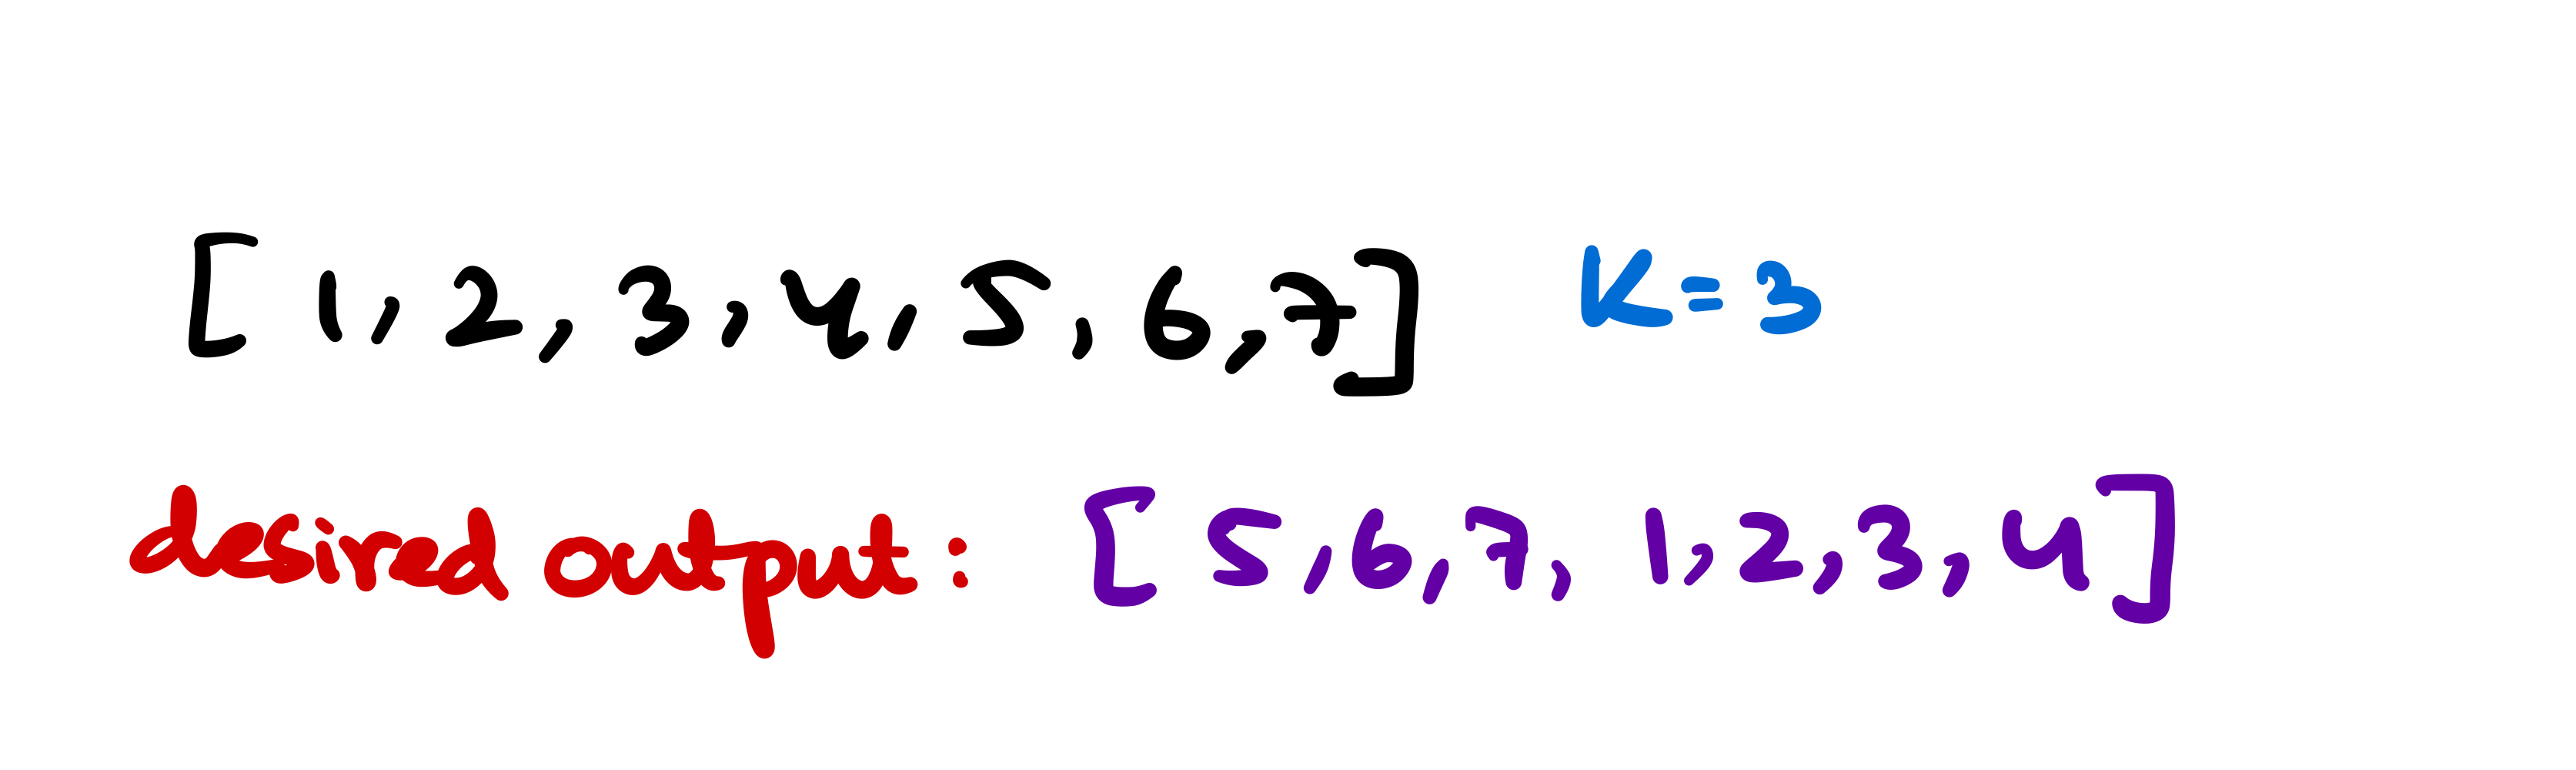 [1, 2, 3, 4, 5, 6, 7] K=3
desired output: [5, 6, 7, 1, 2, 3, 4]